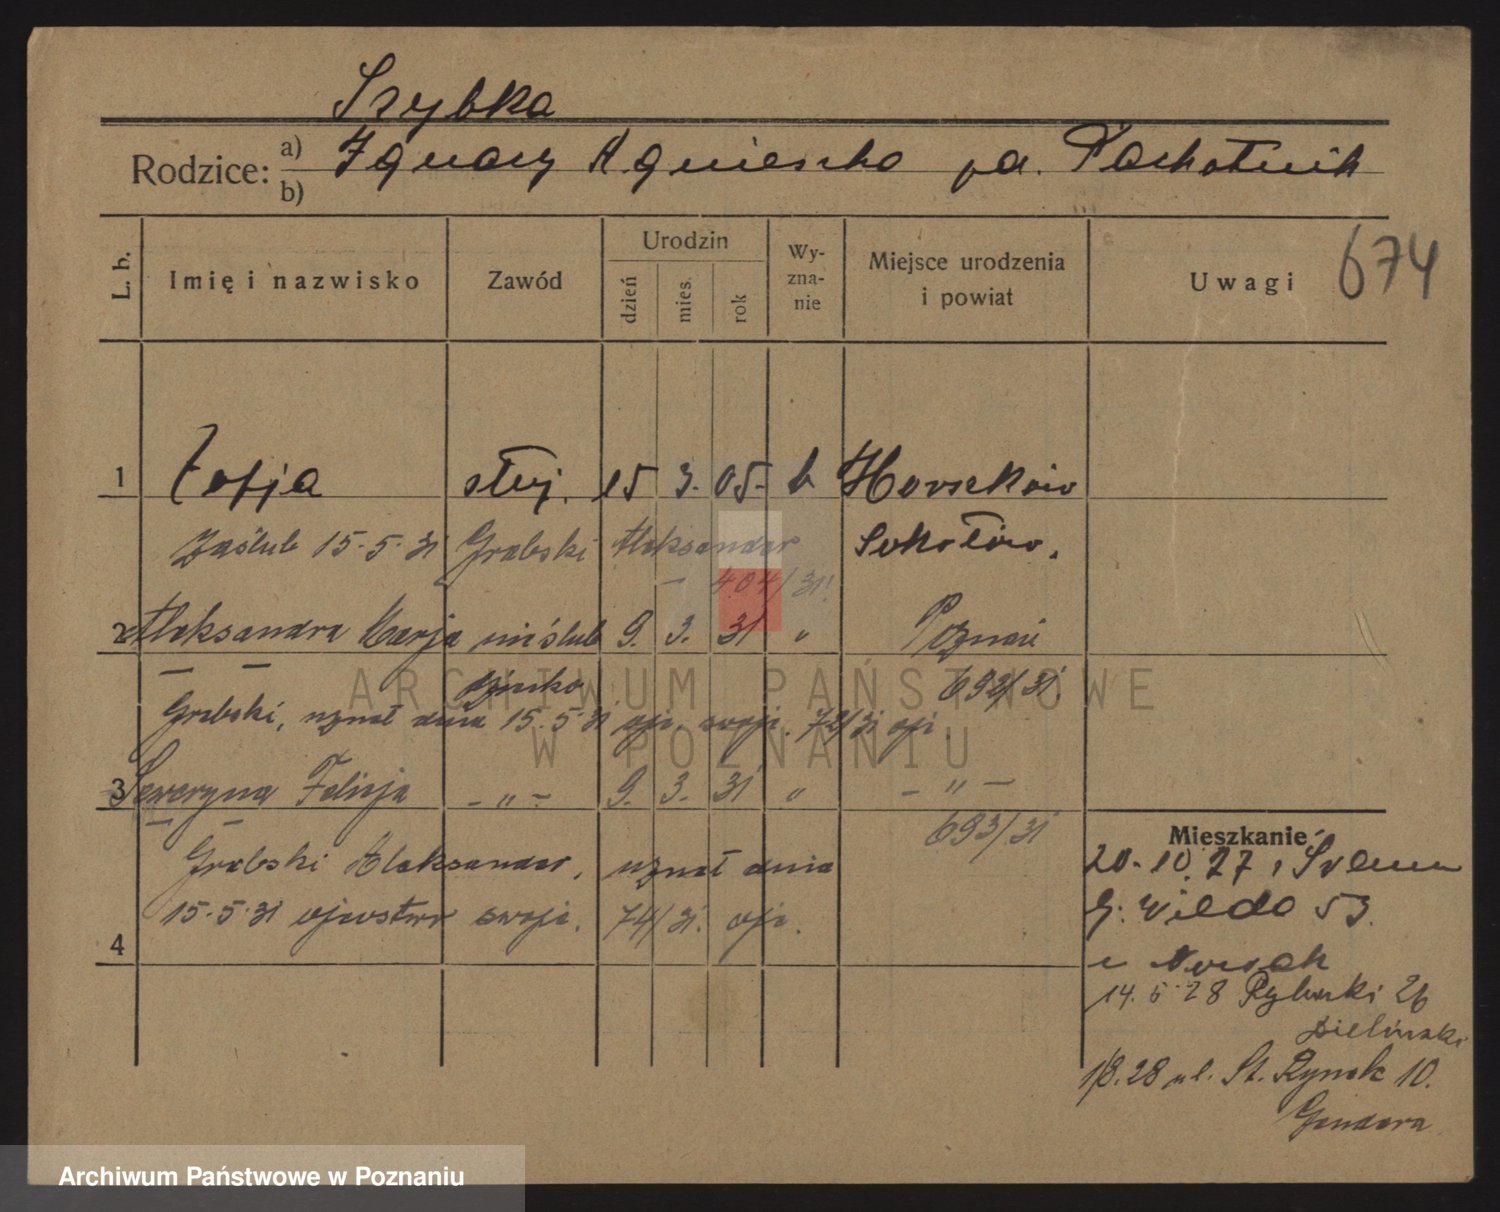 Szybka
Rodzice: a) b) Ignacy Agnieszka pa. Pachołnik
674
L. b. Imię i nazwisko Zawód Urodzin dzień mies. rok Wy-zna-nie Miejsce urodzenia i powiat Uwagi
1 Zofja służ. 15 3. 05. k
Zaślub 15.5.31 Grabski Aleksander Sokołów.
404/31.
2 Aleksandra Marja nieślub 9. 3. 31 " Poznań
dziecko 692/31
Grabski, uznał dnia 15.5.31 ojc. swoje. 73/31 ojc.
ARCHIWUM PAŃSTWOWE
W POZNANIU
3 Seweryna Felicja – " – 9. 3. 31 " – " –
693/31
Grabski Aleksander, uznał dnia
15.5.31 ojcostwo swoje. 74/31. ojc.
4
Mieszkanie
20.10.27 z Śremu
G. Wilda 53.
14.5.28 Rybaki 26
Zieliński
1/8.28 ul. St. Rynek 10.
Gendera
Archiwum Państwowe w Poznaniu